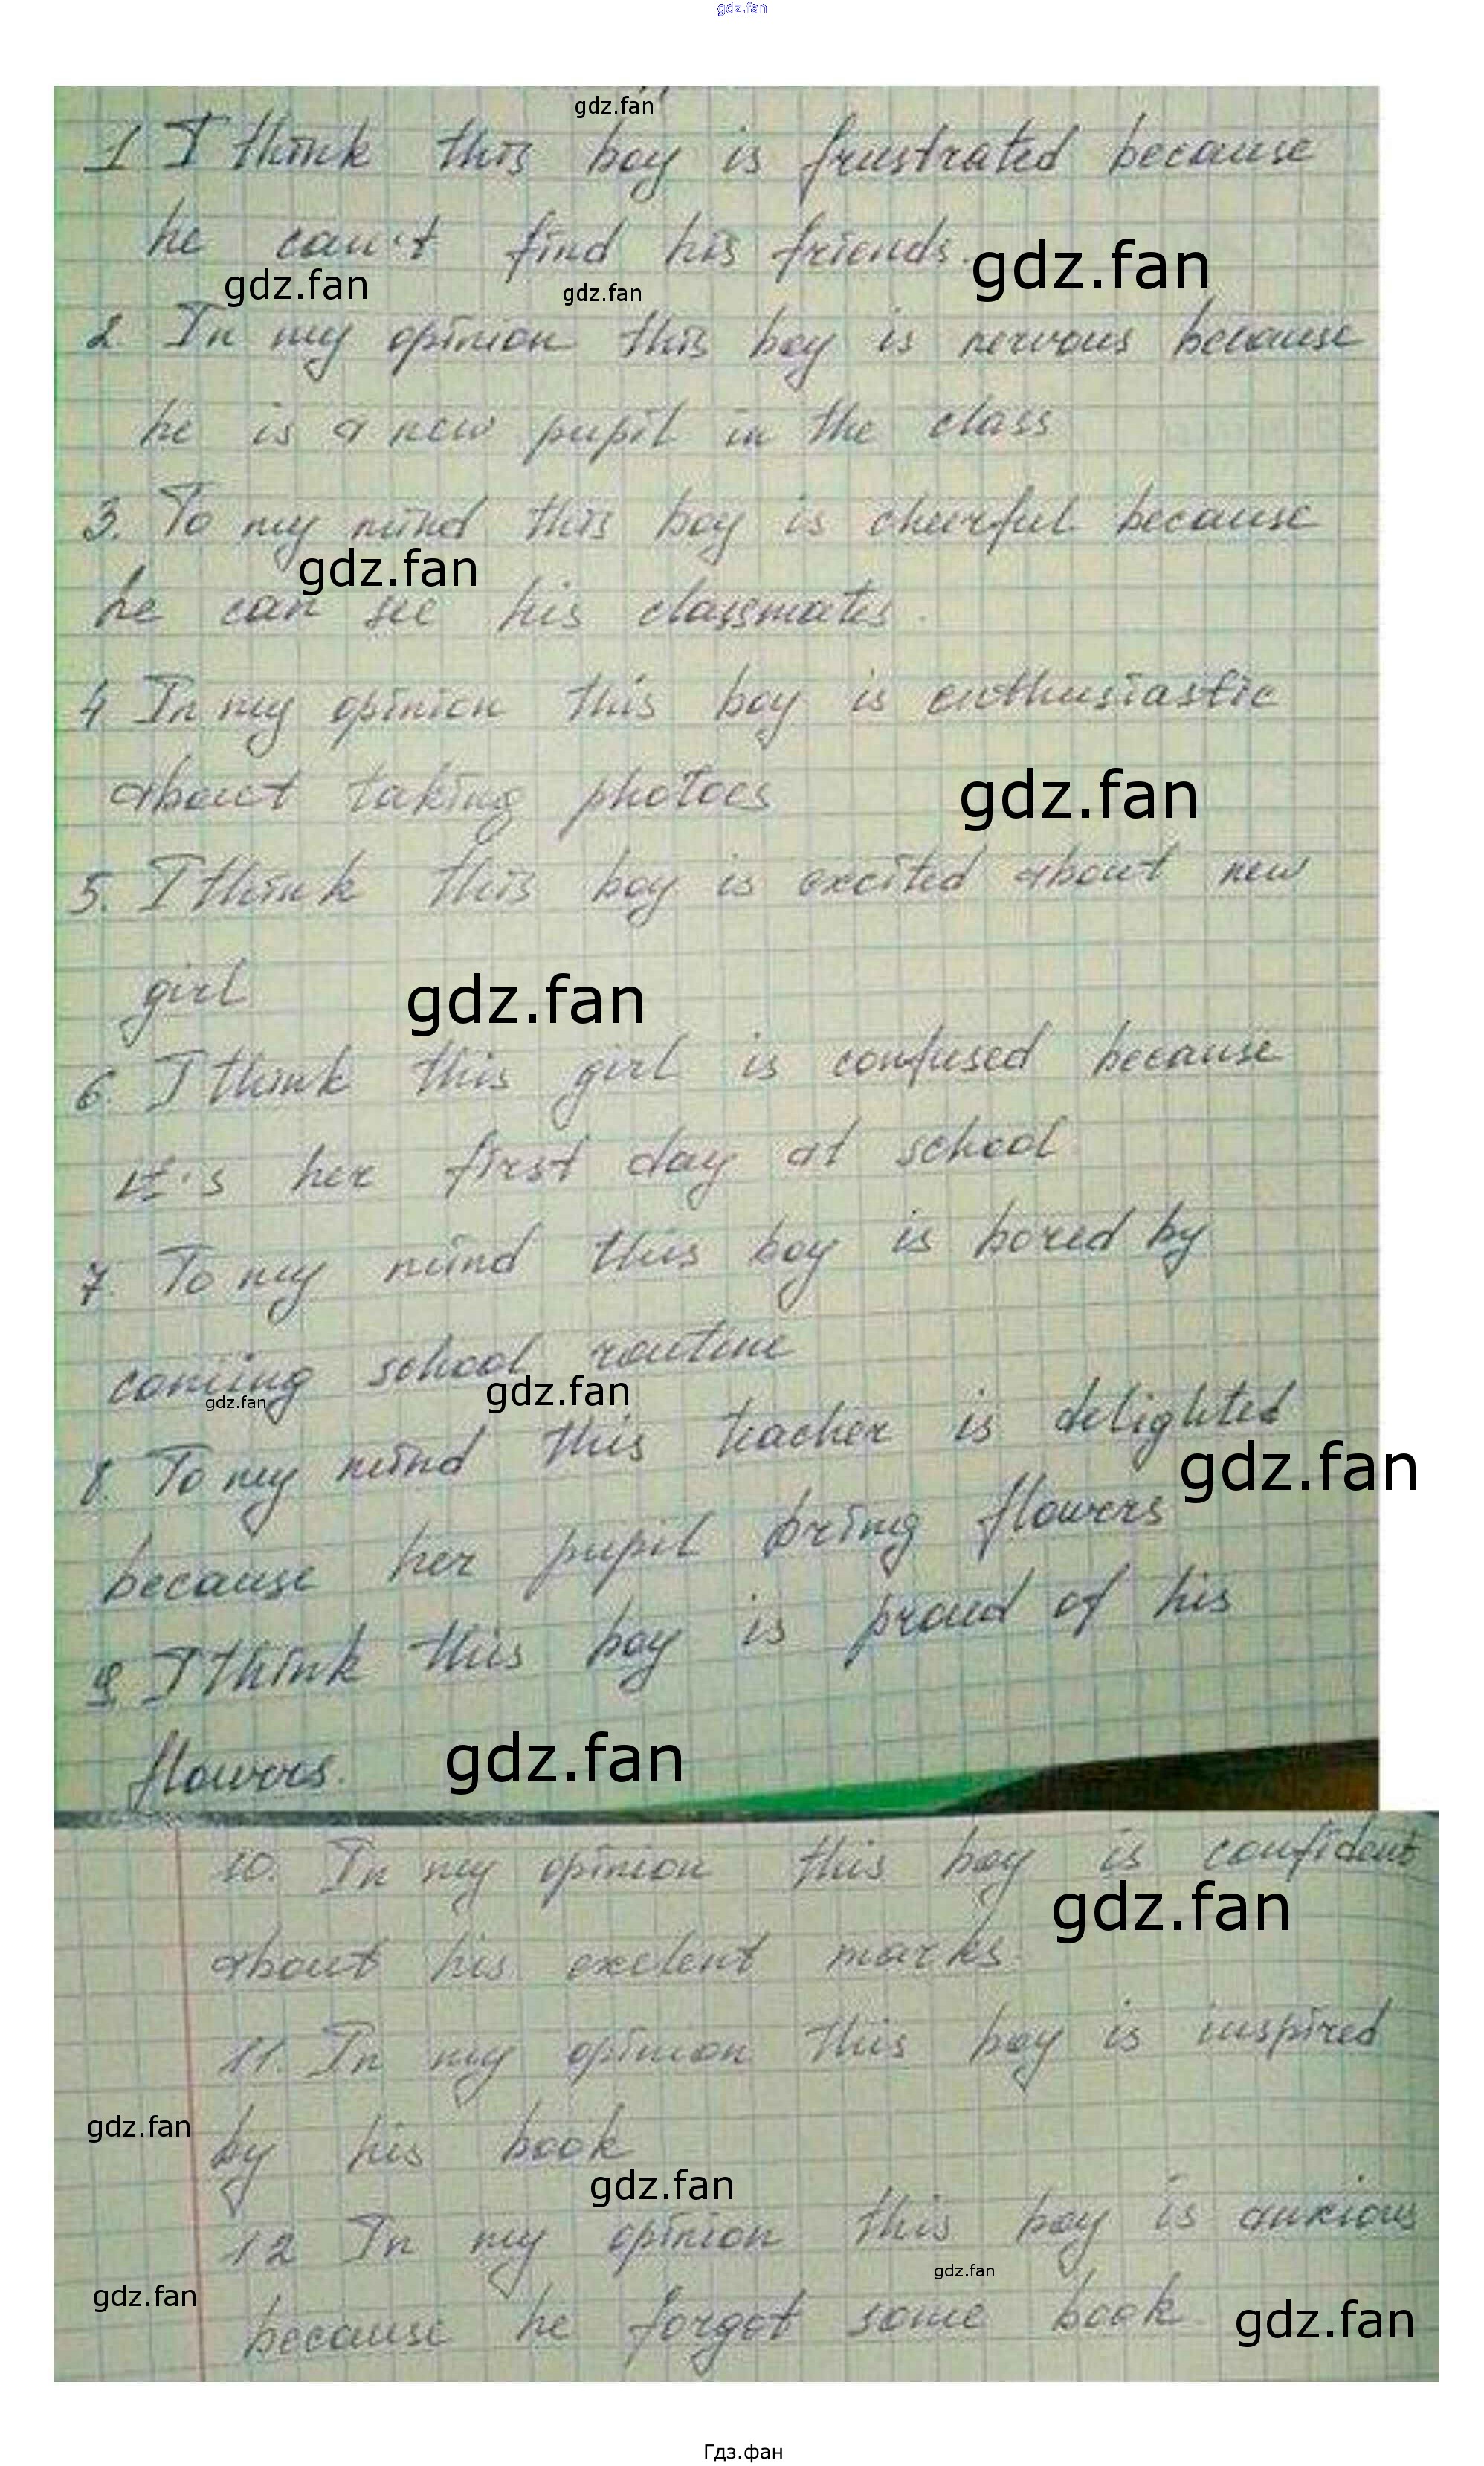 gdz.fan
gdz.fan
1 I think this boy is frustrated because
he can't find his friends.
gdz.fan
gdz.fan
gdz.fan
2 In my opinion this boy is nervous because
he is a new pupil in the class
3. To my mind this boy is cheerful because
gdz.fan
he can see his classmates.
4 In my opinion this boy is enthusiastic
about taking photoes
gdz.fan
5. I think this boy is excited about new
girl
gdz.fan
6. I think this girl is confused because
it's her first day at school
7. To my mind this boy is bored by
coming school routine
gdz.fan
gdz.fan
8. To my mind this teacher is delighted
gdz.fan
because her pupil bring flowers
9 I think this boy is proud of his
flowers.
gdz.fan
10. In my opinion this boy is confident
gdz.fan
about his exelent marks.
11. In my opinion this boy is inspired
gdz.fan
by his book
gdz.fan
12 In my opinion this boy is anxious
gdz.fan
gdz.fan
because he forgot some book.
gdz.fan
Гдз.фан